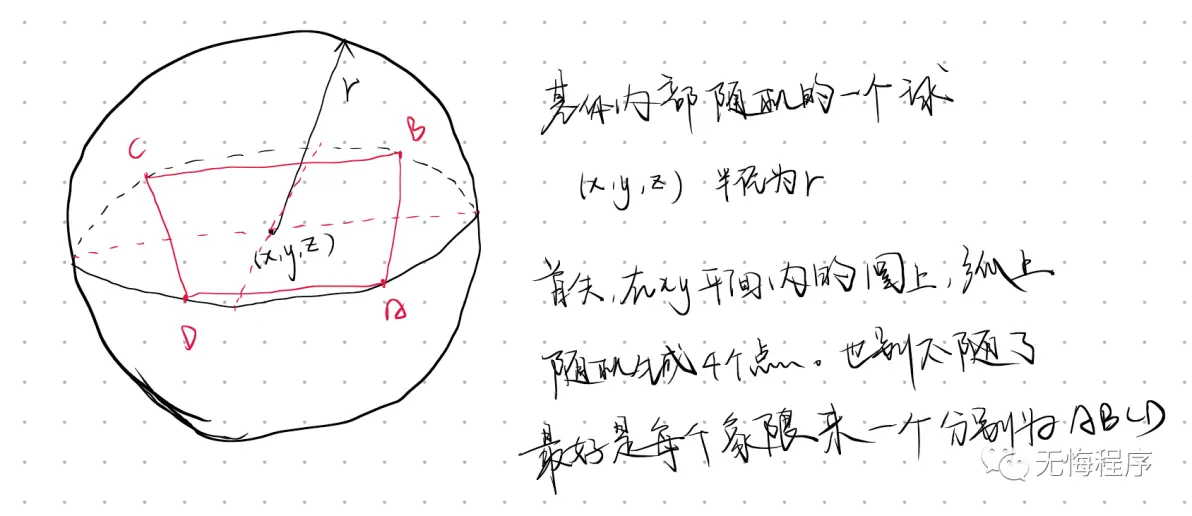 r
C
B
(x,y,z)
D
A
基体内部随机的一个球
(x,y,z) 半径为r
首先,在xy平面内的圆上,弧上
随机生成4个点。也别不随了
最好是每个象限来一个分别为ABCD
无悔程序